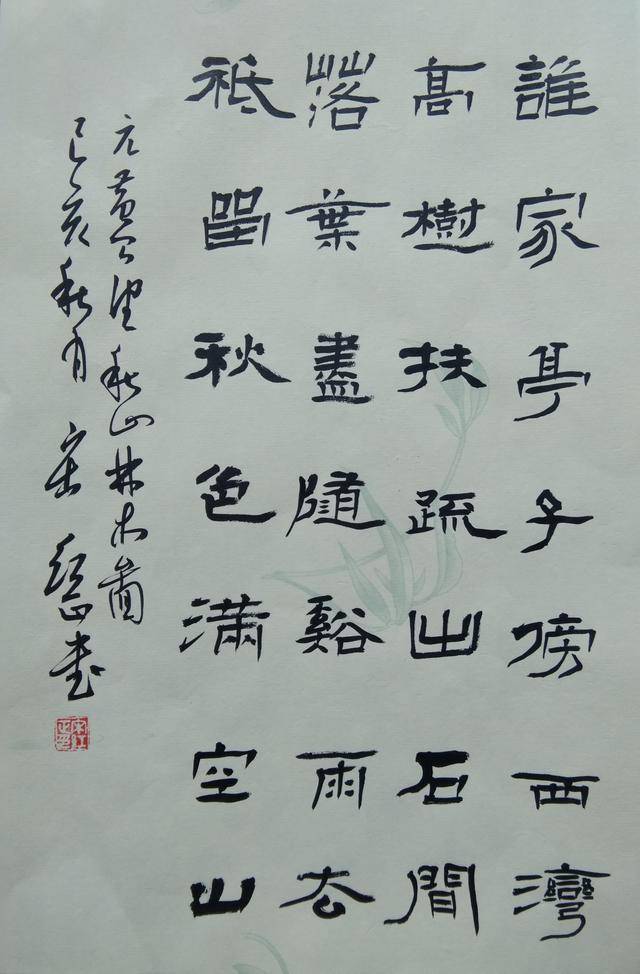 誰家亭子傍西灣
高樹扶疏出石間
落葉盡隨谿雨去
祇留秋色滿空山
元黄公望秋山林木圖
己亥秋月宋書